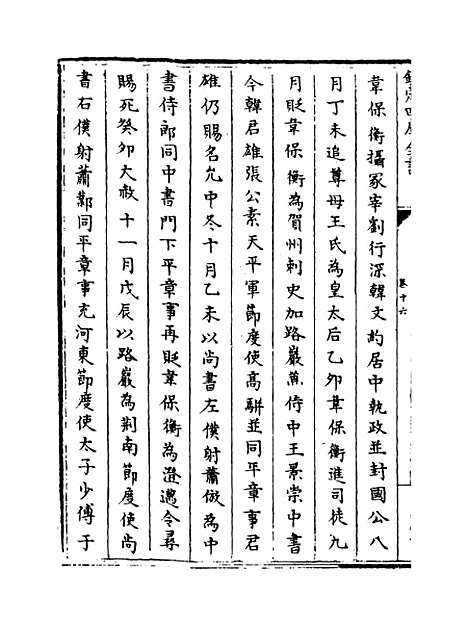 欽定四庫全書
卷十六
韋保衡攝冢宰劉行深韓文約居中執政並封國公八
月丁未追尊母王氏為皇太后乙卯韋保衡進司徒九
月貶韋保衡為賀州刺史加路巖兼侍中王景崇中書
令韓君雄張公素天平軍節度使高駢並同平章事君
雄仍賜名允中冬十月乙未以尚書左僕射蕭倣為中
書侍郎同中書門下平章事再貶韋保衡為澄邁令尋
賜死癸卯大赦十一月戊辰以路巖為荆南節度使尚
書右僕射蕭鄴同平章事充河東節度使太子少傅于